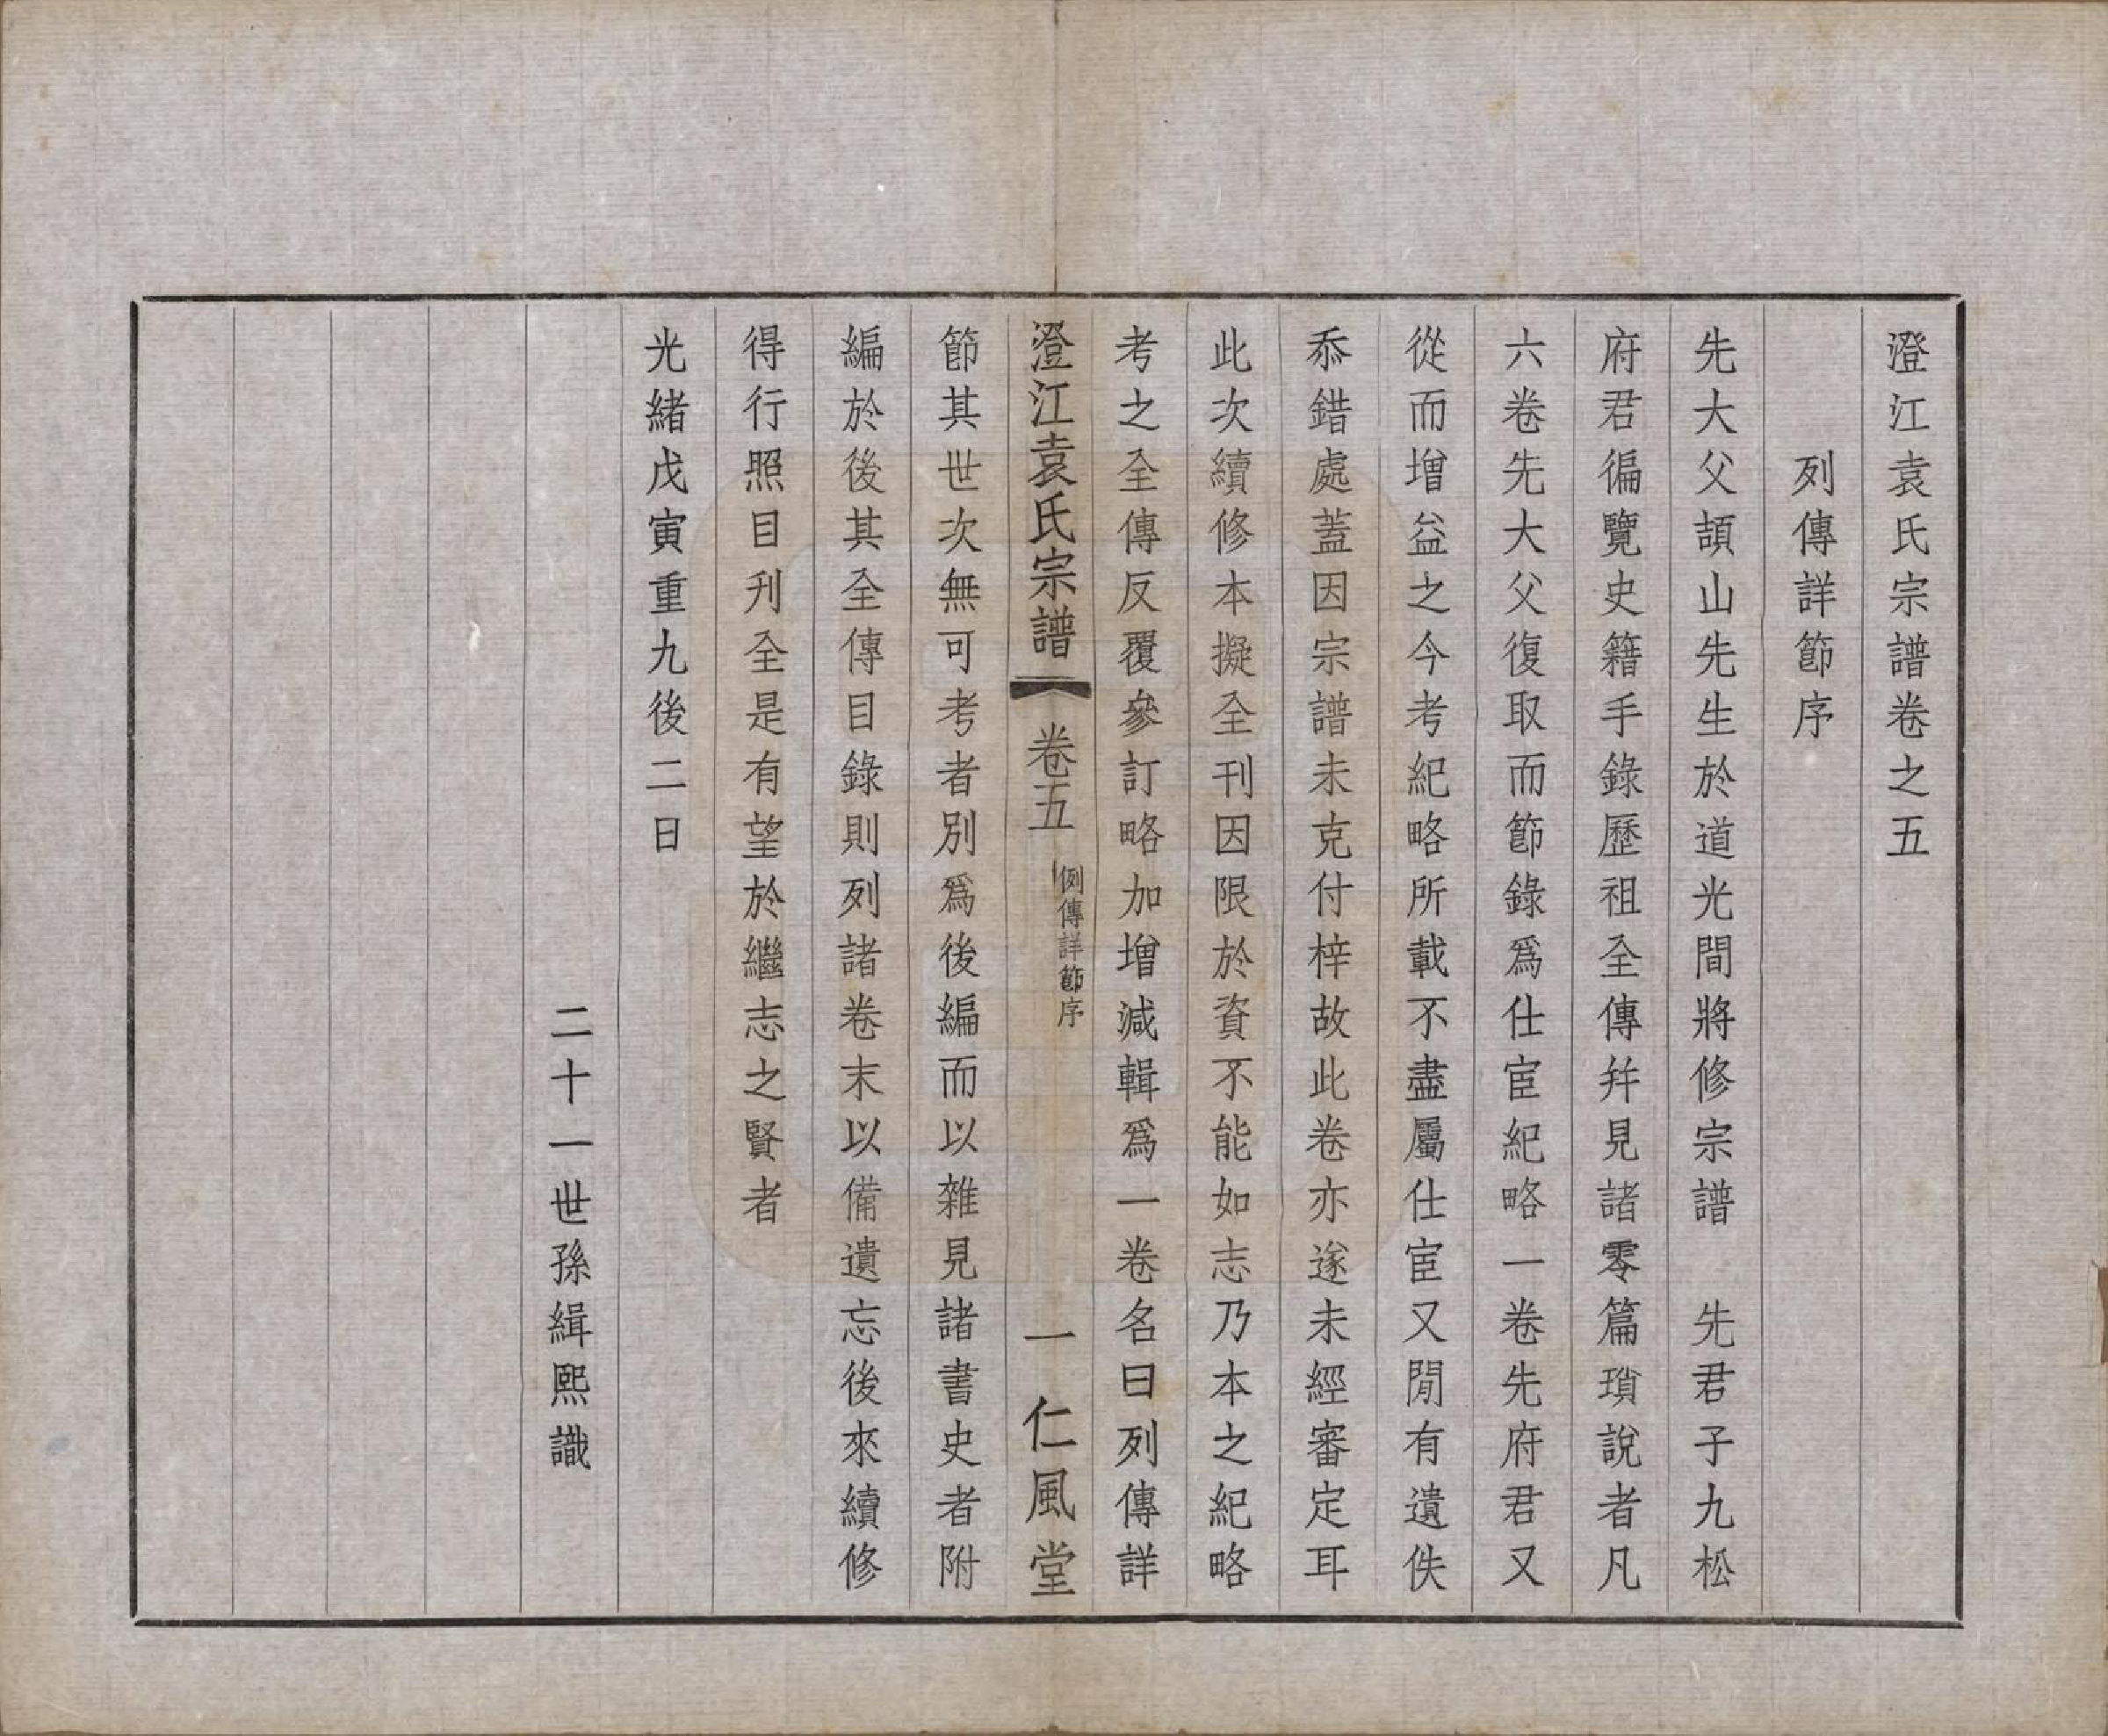 澄江袁氏宗譜卷之五
列傳詳節序
先大父頡山先生於道光間將修宗譜　先君子九松
府君徧覽史籍手錄歷祖全傳幷見諸零篇瑣說者凡
六卷先大父復取而節錄爲仕宦紀略一卷先府君又
從而增益之今考紀略所載不盡屬仕宦又閒有遺佚
忝錯處蓋因宗譜未克付梓故此卷亦遂未經審定耳
此次續修本擬全刊因限於資不能如志乃本之紀略
考之全傳反覆參訂略加增減輯爲一卷名曰列傳詳
澄江袁氏宗譜　卷五　例傳詳節序　一　仁風堂
節其世次無可考者別爲後編而以雜見諸書史者附
編於後其全傳目錄則列諸卷末以備遺忘後來續修
得行照目刋全是有望於繼志之賢者
光緒戊寅重九後二日
二十一世孫緝熙識